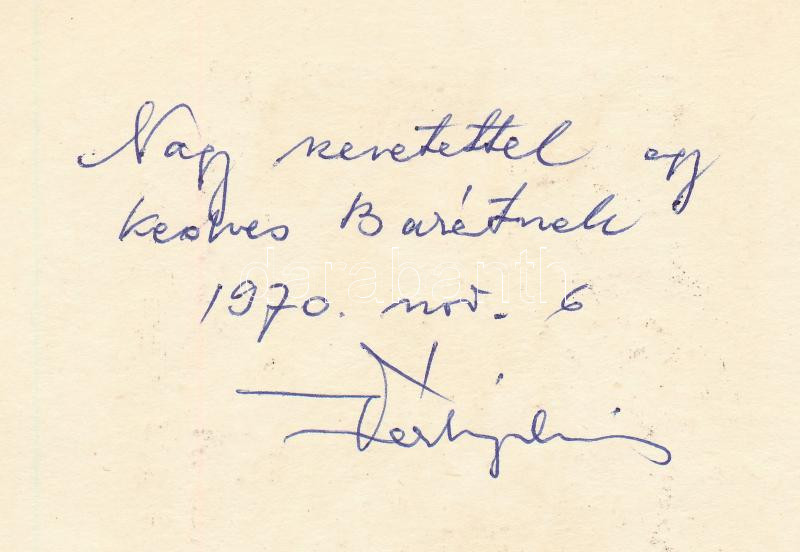 Nagy szeretettel egy
kedves Barátnak
1970. nov. 6
darabanth